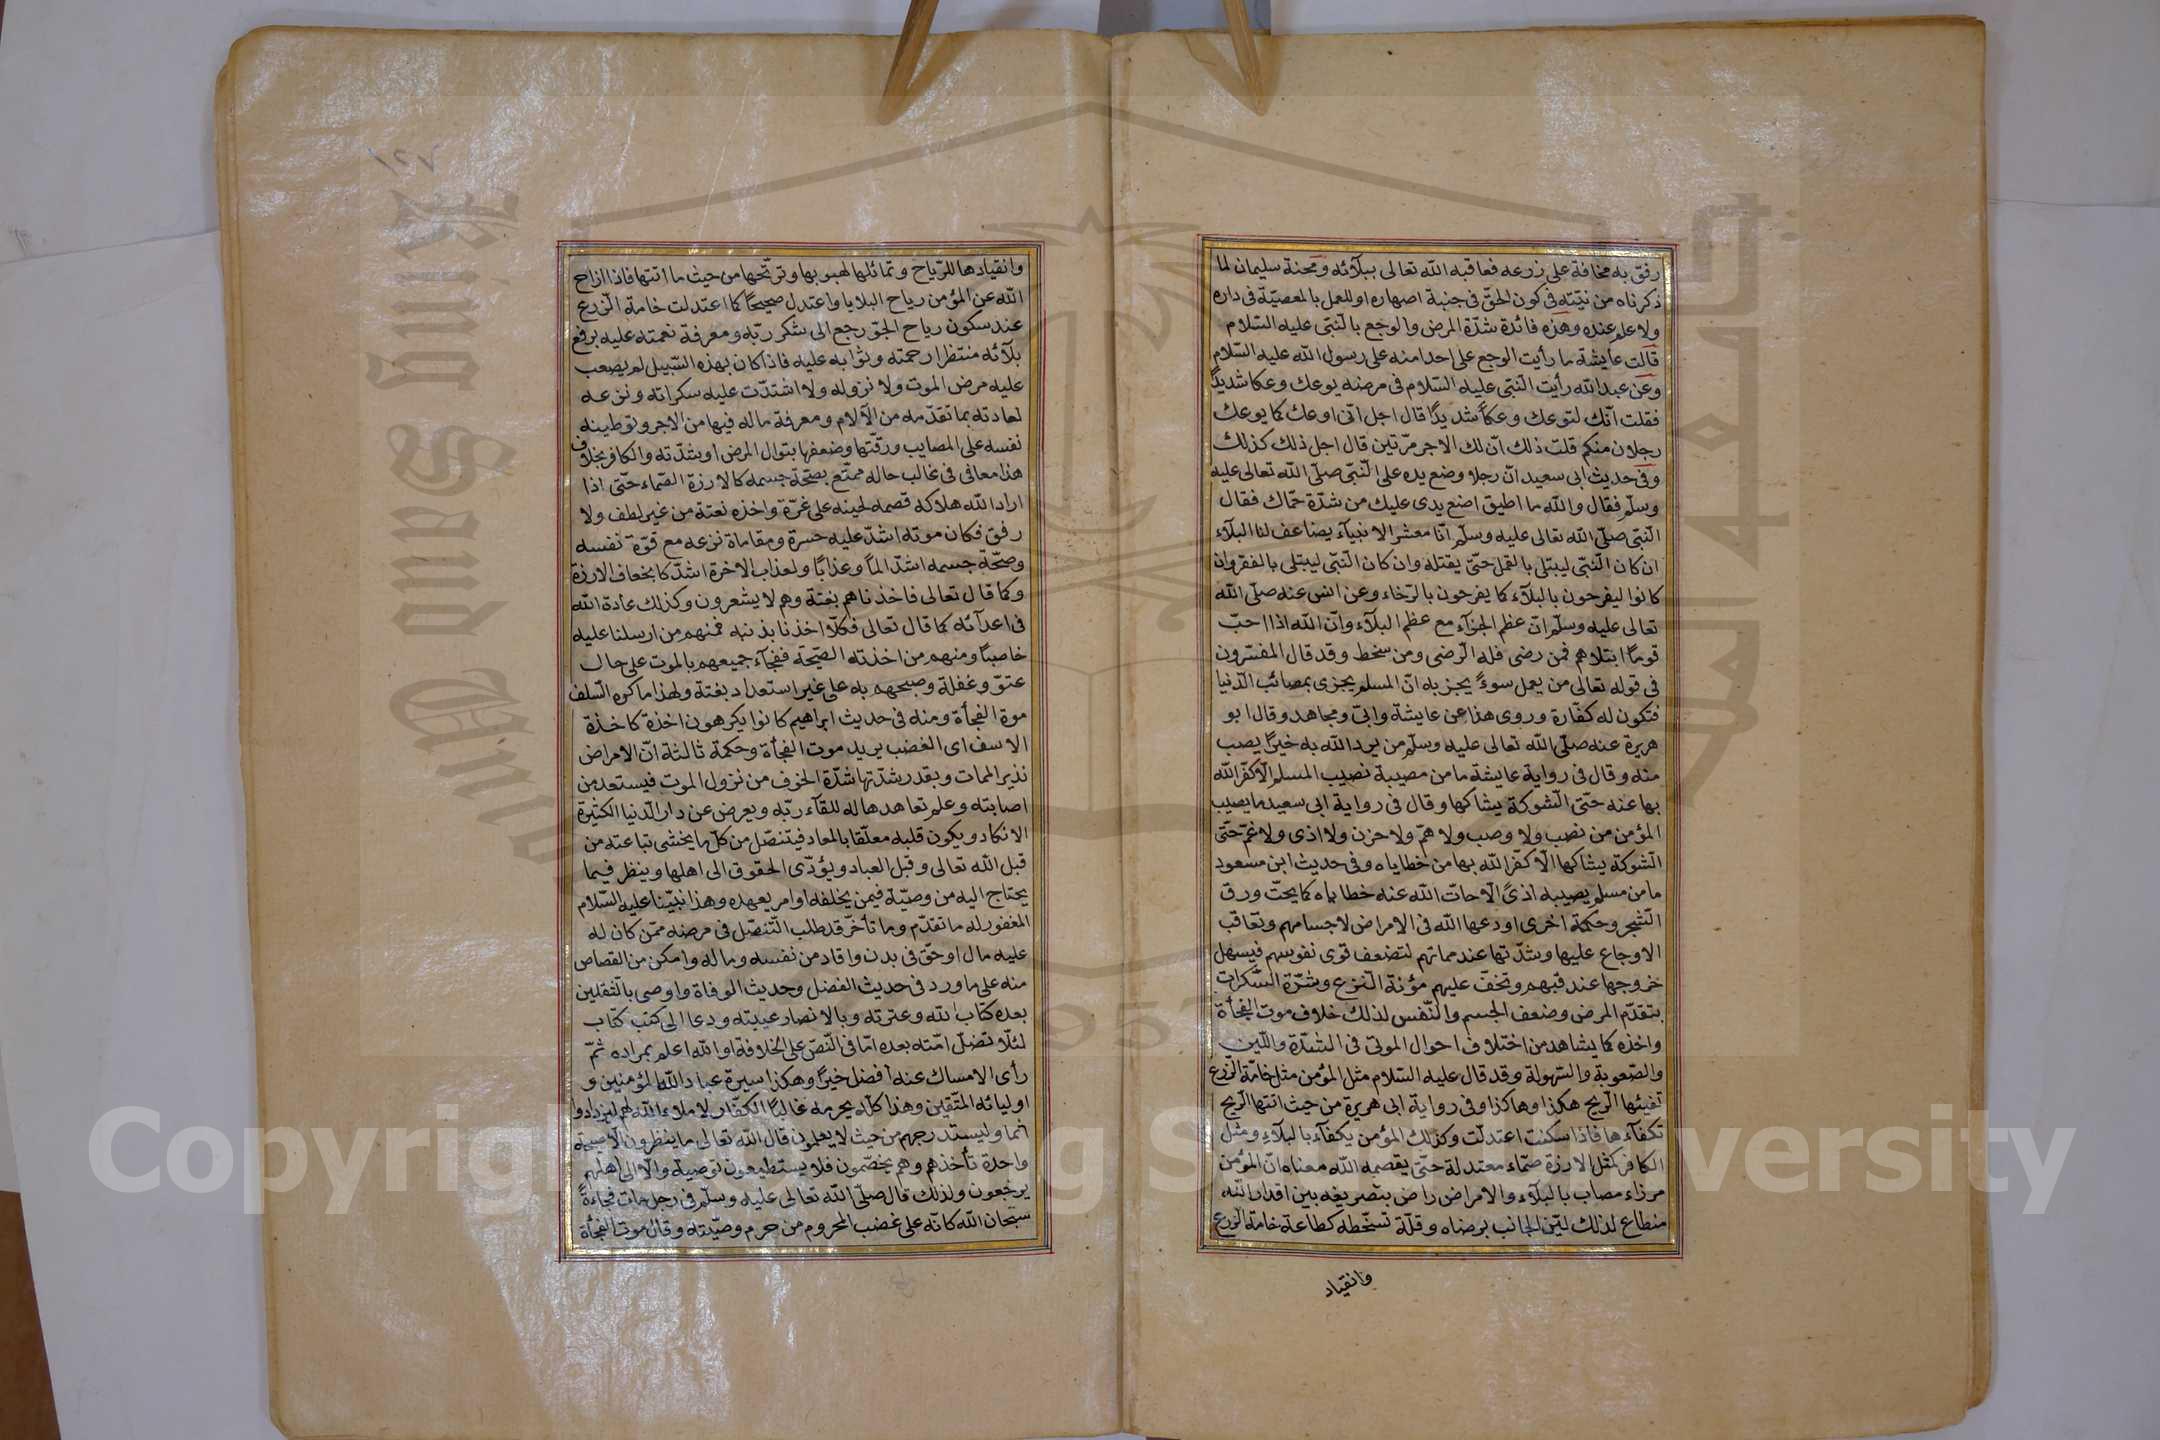 رفق به مخافة على زرعه فعاقبه الله تعالى ببلآئه ومحنة سليمان لما
ذكرناه من نيّته فى كون الحقّ فى جنبة اصهاره او للعمل بالمعصيّة فى داره
ولا علم عنده وهذه فائدة شدّة المرض والوجع بالنّبى عليه السّلام
قالت عايشة ما رأيت الوجع على احد امنه على رسول الله عليه السّلام
وعن عبد الله رأيت النّبى عليه السّلام فى مرضه يوعك وعكا شديدًا
فقلت انّك لتوعك وعكاً شديدًا قال اجل انّى اوعك كما يوعك
رجلان منكم قلت ذلك انّ لك الاجر مرّتين قال اجل ذلك كذلك
وفى حديث ابى سعيد انّ رجلا وضع يده على النّبىّ صلّى الله تعالى عليه
وسلّم فقال والله ما اطيق اضع يدى عليك من شدّة حمّاك فقال
النّبى صلّى الله تعالى عليه وسلّم انّا معشر الانبيآء يضاعف لنا البلآء
ان كان النّبى ليبتلى بالقمل حتّى يقتله وان كان النّبى ليبتلى بالفقر وان
كانوا ليفرحون بالبلآء كما يفرحون بالرّخاء وعن انس عنه صلّى الله
تعالى عليه وسلّم انّ عظم الجزآء مع عظم البلآء وانّ الله اذا احبّ
قوماً ابتلاهم فمن رضى فله الرّضى ومن سخط وقد قال المفسّرون
فى قوله تعالى من يعمل سوءً يجز به انّ المسلم يجزى بمصائب الدّنيا
فتكون له كفّارة وروى هذا عن عايشة وابىّ ومجاهد وقال ابو
هريرة عنه صلّى الله تعالى عليه وسلّم من يرد الله به خيرًا يصب
منه وقال فى رواية عايشة ما من مصيبة تصيب المسلم الّا كفّر الله
بها عنه حتّى الشّوكة يشاكها وقال فى رواية ابى سعيد ما يصيب
المؤمن من نصب ولا وصب ولا همّ ولا حزن ولا اذى ولا غمّ حتّى
الشّوكة يشاكها الّا كفّر الله بها من خطاياه وفى حديث ابن مسعود
ما من مسلم يصيبه اذىً الّا حاتّ الله عنه خطاياه كما يحتّ ورق
الشّجر وحكمة اخرى اودعها الله فى الامراض لاجسامهم وتعاقب
الاوجاع عليها وشدّتها عند مماتهم لتضعف قوى نفوسهم فيسهل
خروجها عند قبهم وتخفّ عليهم مؤنة النّزع وشدّة السّكرات
بتقدّم المرض وضعف الجسم والنّفس لذلك خلاف موت الفجأة
واخذه كما يشاهد من اختلاف احوال الموتى فى الشدّة واللّين
والصّعوبة والسّهولة وقد قال عليه السّلام مثل المؤمن مثل خامة الزّرع
تفيئها الرّيح هكذا وهاكذا وفى رواية ابى هريرة من حيث اتتها الرّيح
تكفآءها فاذا سكنت اعتدلت وكذلك المؤمن يكفآء بالبلآء ومثل
الكافر كمثل الارزة صمّاء معتدلة حتّى يقصمه الله معناه انّ المؤمن
مرزاء مصاب بالبلآء والامراض راض بتصريفه بين اقدار الله
منطاع لذلك ليّن الجانب برضاه وقلّة تسخّطه كطاعة خامة الزّرع
وانقياد
وانقيادها للرّياح وتمائلها لهبوبها وترنّحها من حيث ما اتتها فاذا ازاح
الله عن المؤمن رياح البلايا واعتدل صحيحًا كما اعتدلت خامة الزّرع
عند سكون رياح الجوّ رجع الى شكر ربّه ومعرفة نعمته عليه برفع
بلآئه منتظرا رحمته وثوابه عليه فاذا كان بهذه السّبيل لم يصعب
عليه مرض الموت ولا نزوله ولا اشتدّت عليه سكراته ونزعه
لعادته بما تقدّمه من الآلام ومعرفة ما له فيها من الاجر وتوطينه
نفسه على المصايب ورقّتها وضعفها بتوال المرض او شدّته والكافر بخلاف
هذا معافى فى غالب حاله ممتّع بصحّة جسمه كالارزة الصّماء حتّى اذا
اراد الله هلاكه قصمه لحينه على غرّة واخذه بغتة من غير لطف ولا
رفق فكان موته اشدّ عليه حسرة ومقاماة نزعه مع قوّة نفسه
وصحّة جسمه اشدّ الماً وعذابًا ولعذاب الاخرة اشدّ كانجعاف الارزة
وكما قال تعالى فاخذناهم بغتة وهم لا يشعرون وكذلك عادة الله
فى اعدآئه كما قال تعالى فكلّا اخذنا بذنبه فمنهم من ارسلنا عليه
حاصبًا ومنهم من اخذته الصّيحة ففجآء جميعهم بالموت على حال
عتوّ وغفلة وصبحهم به على غير استعداد بغتة ولهذا ما كره السّلف
موة الفجأة ومنه فى حديث ابراهيم كانوا يكرهون اخذة كاخذة
الاسف اى الغضب يريد موت الفجأة وحكمة ثالثة انّ الامراض
نذير الممات وبقدر شدّتها شدّة الخوف من نزول الموت فيستعد من
اصابته وعلم تعاهدها له للقآء ربّه ويعرض عن دار الدّنيا الكثيرة
الانكاد ويكون قلبه معلّقا بالمعاد فيتنصّل من كلّ ما يخشى تباعته من
قبل الله تعالى وقبل العباد ويؤدّى الحقوق الى اهلها وينظر فيما
يحتاج اليه من وصيّة فيمن يخلفه او امر يعهده وهذا نبيّنا عليه السّلام
المغفور له ما تقدّم وما تأخّر قد طلب التّنصّل فى مرضه ممّن كان له
عليه مال او حقّ فى بدن واقاد من نفسه وماله وامكن من القصاص
منه على ما ورد فى حديث الفضل وحديث الوفاة واوصى بالثّقلين
بعده كتاب الله وعترته وبالانصار عيبته ودعا الى كتب كتاب
لئلّا تضلّ امّته بعده امّا فى النّصّ على الخلافة او الله اعلم بمراده ثمّ
رأى الامساك عنه افضل خيرًا وهكذا سيرة عباد الله المؤمنين و
اوليائه المتّقين وهذا كلّه يحرمه غالبًا الكفّار لاملاء الله لهم ليزدادوا
اثما وليستدرجهم من حيث لا يعلمون قال الله تعالى ما ينظرون الّا صيحة
واحدة تأخذهم وهم يخصّمون فلا يستطيعون توصية ولا الى اهلهم
يرجعون ولذلك قال صلّى الله تعالى عليه وسلّم فى رجل مات فجاءةً
سبحان الله كانّه على غضب المحروم من حرم وصيّته وقال موت الفجأة
Copyright © King Saud University
King Saud University
1957